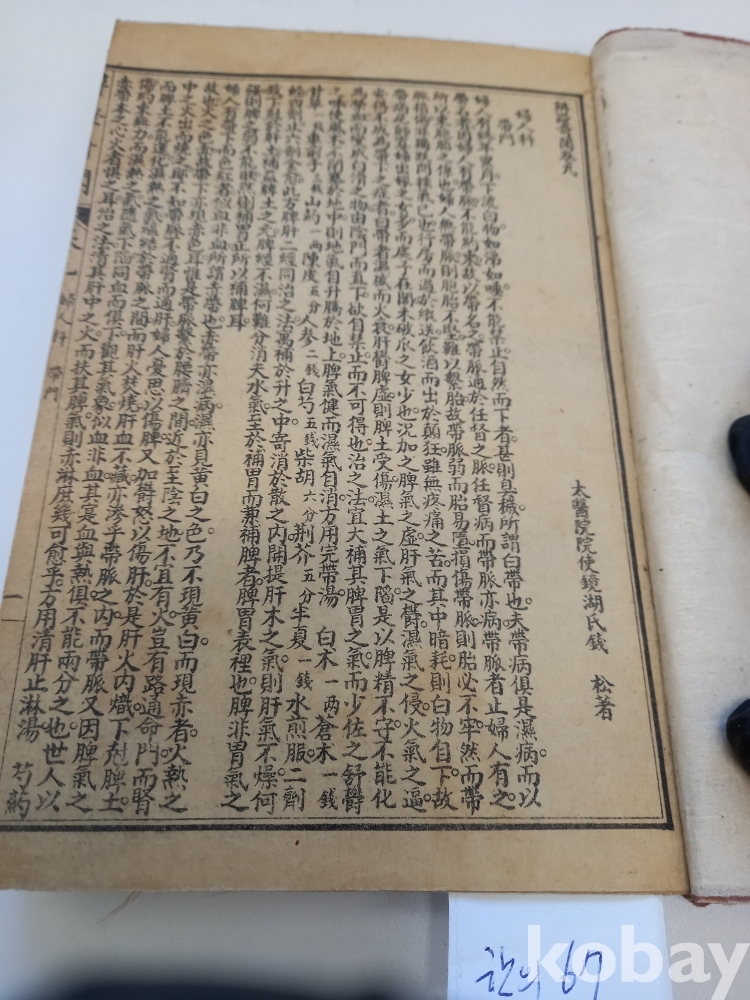 辨證奇聞卷九
太醫院院使鏡湖氏錢 松著
婦人科
帶門
婦人有終年累月下流白物如涕如唾不能禁止自然而下者甚則臭穢所謂白帶也夫帶病俱是濕病而以
帶名者因婦人有帶脈不能約束故以帶名之帶脈通於任督之脈任督病而帶脈亦病帶脈者止婦人有之
所以束胞胎之係也婦人無帶脈則胞胎不堅難以繫胎故帶脈弱而胎易墮損傷帶脈則胎必不牢然而帶
脈損傷非獨跌閃挫氣已也行房而過於縱送飲酒而出於顛狂雖無疼痛之苦而其中暗耗則白物自下故
帶病尼師寡婦出嫁之女多而處子在閨未破瓜之女少也況加之脾氣之虛肝氣之鬱濕氣之侵火氣之逼
安得不成為帶下之症者曰帶者濕盛而火衰肝鬱脾虛則脾土受傷濕土之氣下陷是以脾精不守不能化
為榮血而變成白滑之物由陰門而直下欲自禁止而不可得也治之法宜大補其脾胃之氣而少佐之舒鬱
之味使風木不閉塞於地中則地氣自升騰於地上脾氣健而濕氣自消方用完帶湯 白朮一兩 蒼朮一錢
甘草一錢 車前子三錢 山藥一兩 陳皮五分 人參二錢 白芍五錢 柴胡六分 荆芥五分 半夏一錢 水煎服二劑
輕四劑止六劑全愈此方脾肝二經同治之法寓補於升之中寄消於散之內開提肝木之氣則肝氣不燥何
致下尅脾土補益脾土之元脾經不濕何難分消夫水氣至於補胃而兼補脾者脾胃表裡也脾非胃氣之
強則脾之弱不能旺然則補胃正所以補脾耳
婦人有帶下而色紅者似血非血所謂赤帶也赤帶亦濕病濕亦見黃白之色乃不現黃白而現赤者火熱之
故也火之色赤故帶下亦現赤色耳惟是帶脈繫於腰臍之間近於至陰之地不宜有火豈有路通命門而腎
中之火出而燒之耶不知帶脈不通腎而通肝婦人憂思以傷脾又加鬱怒以傷肝於是肝火內熾下尅脾土
而脾土不能運化濕熱之氣蘊結於帶脈之間而肝火焚燒肝血不藏亦滲乎帶脈之內而帶脈又因脾氣之
傷約束無力而濕熱之氣隨氣下陷同血而俱下觀其氣象似血非血其實是血與熱俱不能兩分之也世人以
赤帶木之心火者悞之耳治之法清其肝中之火而扶其脾氣則赤淋庶幾可愈乎方用清肝止淋湯 芍藥
辨證奇聞 卷九 婦人科 帶門 一
한의 67
kobay